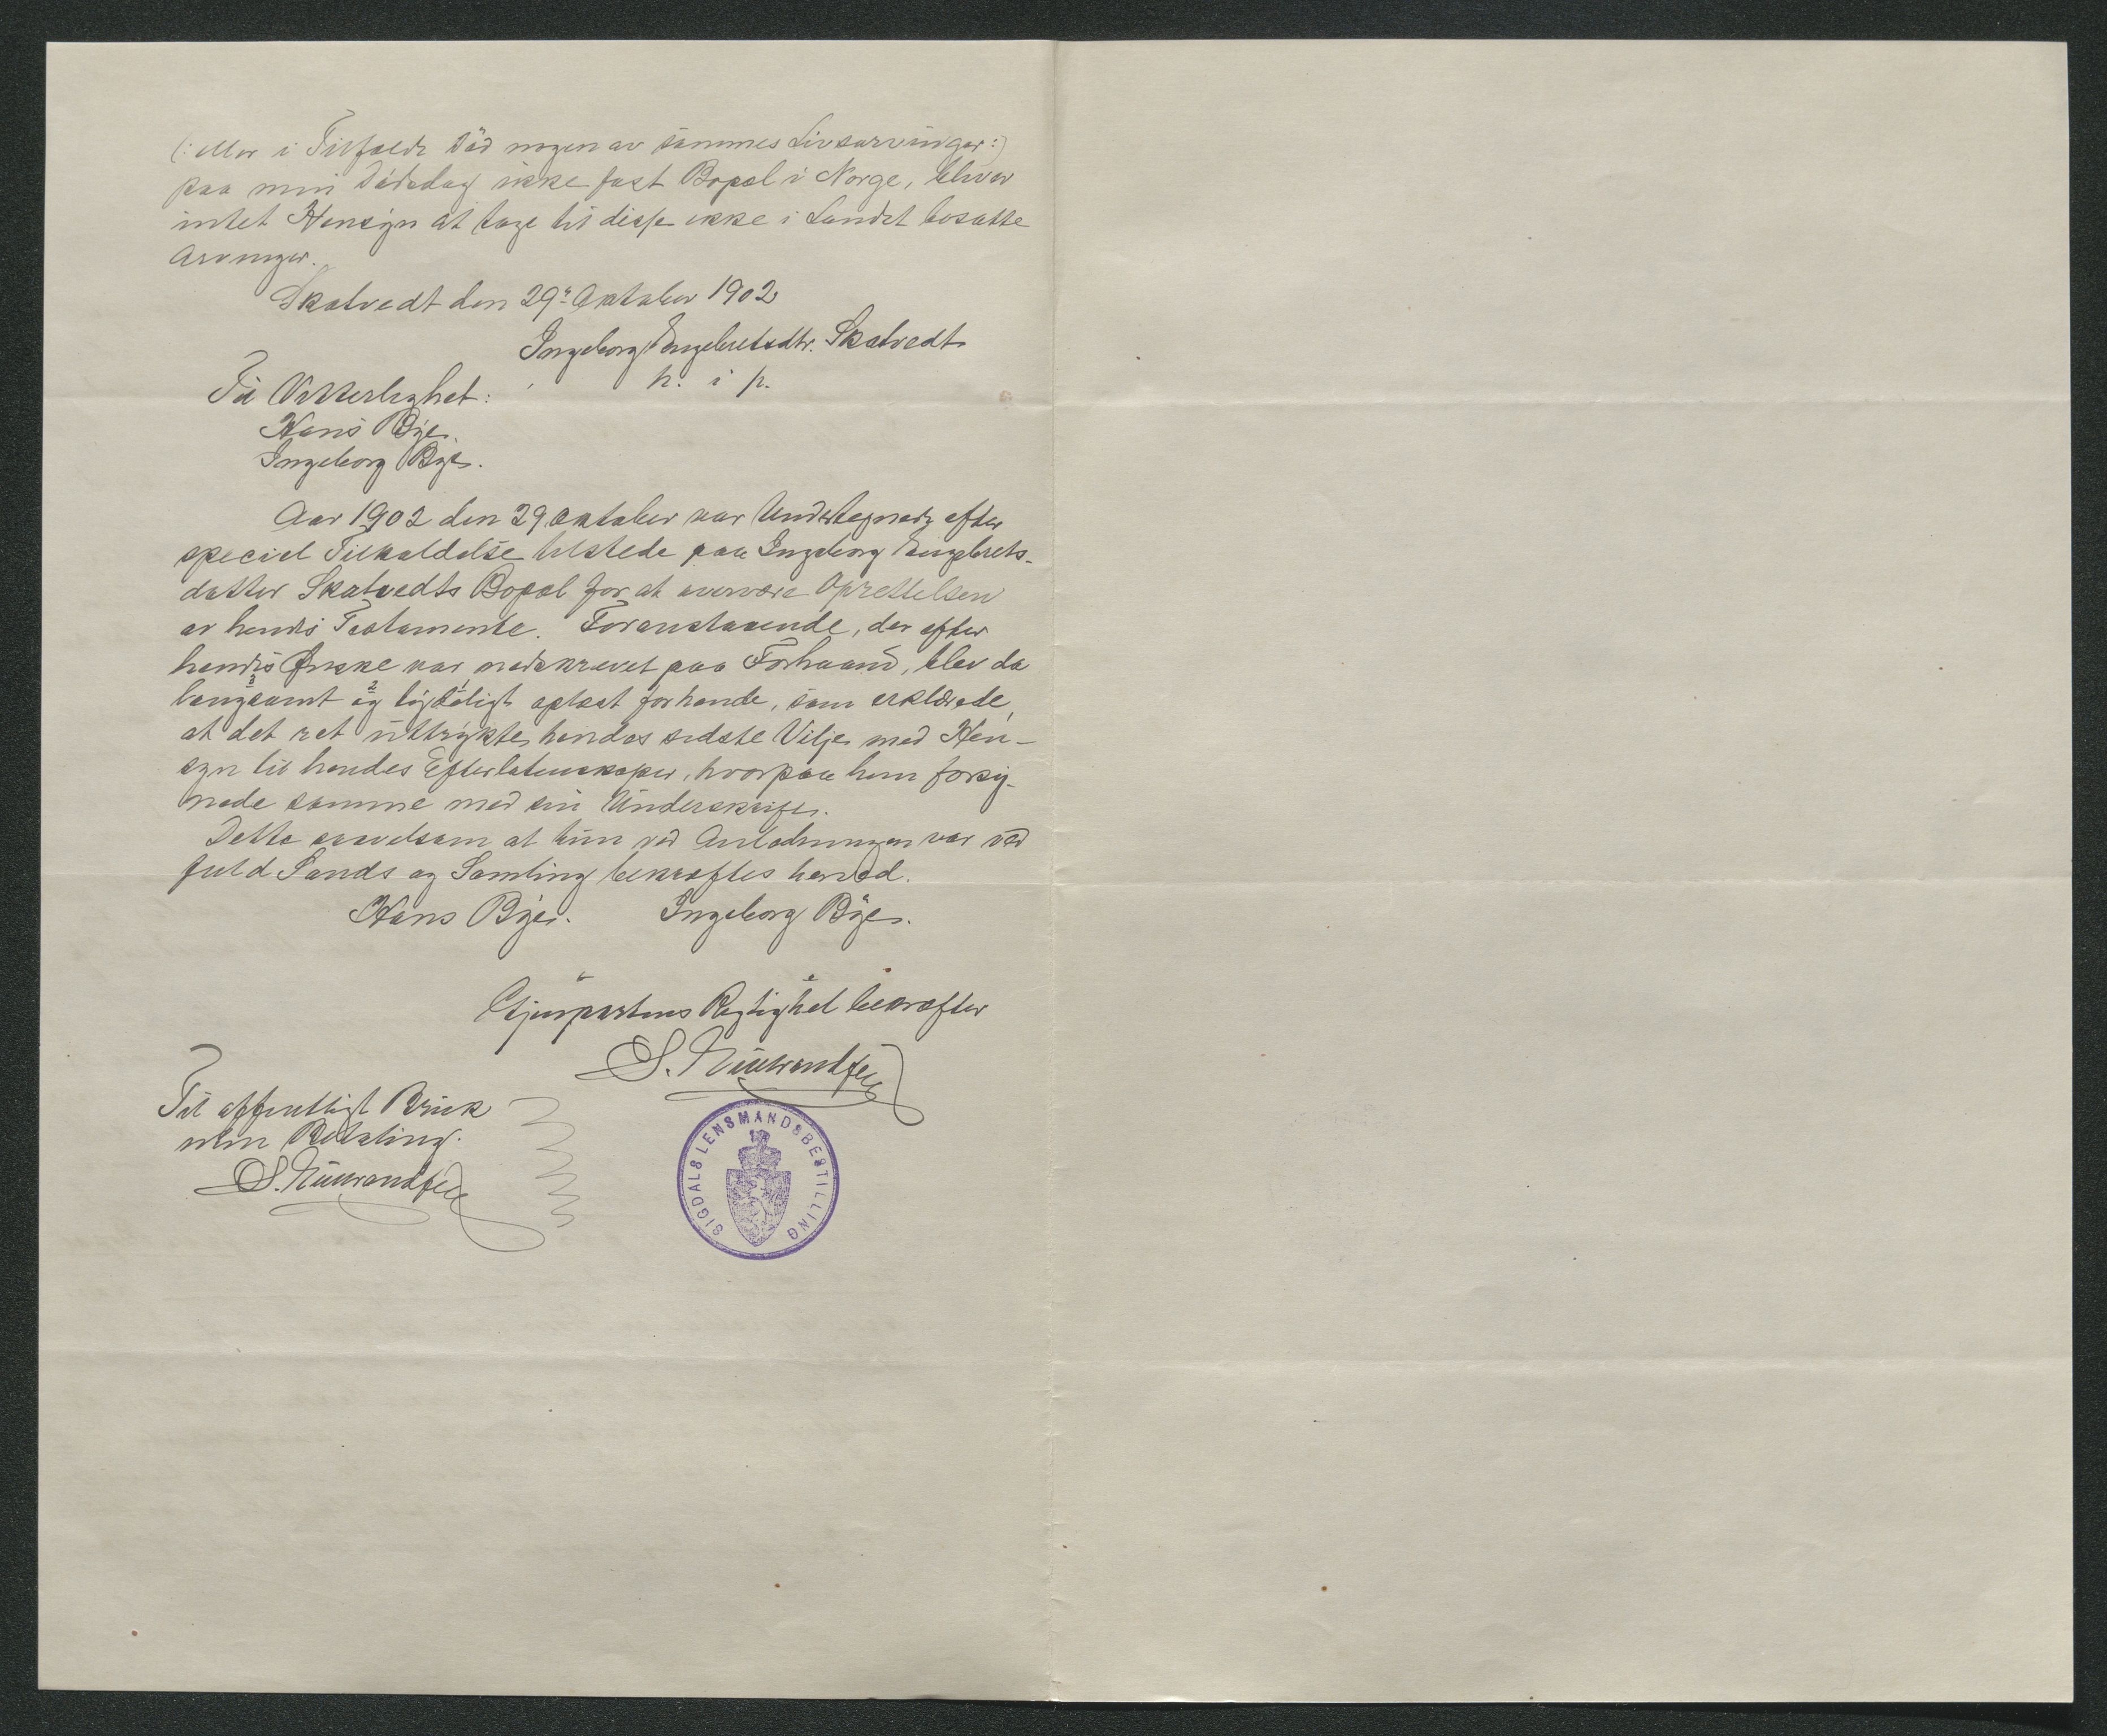 (: eller i Tilfælde Död nogen av sammes Livsarvinger :)
paa min Dödsdag ikke fast Bopæl i Norge, bliver
intet Hensyn at tage til disse ikke i Landet bosatte
Arvinger.
Skatvedt den 29de Oktober 1902
Ingeborg Engebretsdtr. Skatvedt
h. i p.
Til Vitterlighet:
Hans Bye.
Ingeborg Bye.
Aar 1902 den 29 Oktober var Undertegnede efter
speciel Tilkaldelse tilstede paa Ingeborg Engebrets-
datter Skatvedts Bopæl for at overvære Oprettelsen
av hendes Testamente. Foranstaaende, der efter
hendes Ønske var nedskrevet paa Forhaand, blev da
langsomt og tydeligt oplæst for hende, som erklærede,
at det ret uttrykte hendes sidste Vilje med Hen-
syn til hendes Efterlatenskaper, hvorpaa hun forsy-
nede samme med sin Underskrift.
Dette saavelsom at hun ved Anledningen var ved
fuld Sands og Samling bekræftes herved.
Hans Bye. Ingeborg Bye.
Gjenpartens Rigtighet bekræfter
S.
Til offentligt Bruk
uten Betaling.
S.
SIGDALS LENSMANDSBESTILLING